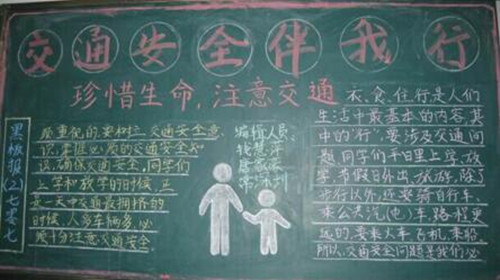 交通安全伴我行
珍惜生命，注意交通
黑板报(2)七零七
重视的，要树立交通安全意
识，掌握必要的交通安全知
识，确保交通安全，同学们
上学和放学的时候，正
是一天中交通最拥挤的
时候，人多车辆多，必
须十分注意交通安全。
编辑人员：
衣、食、住、行是人们
生活中最基本的内容，其
中的“行”，要涉及交通问
题，同学们平日里上学，放
学，节假日外出，旅游，除了
步行以外，还要骑自行车，
乘公共汽(电)车，路程更
远的，要乘火车、飞机、乘船，
所以，交通安全问题是我们必